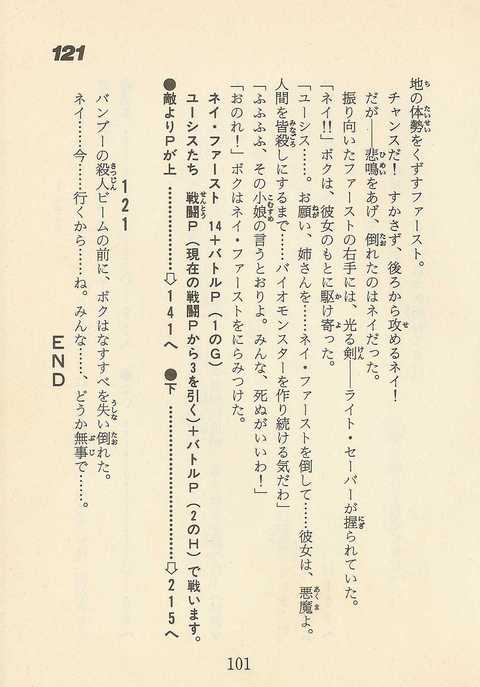 121
地の体勢をくずすファースト。
チャンスだ！ すかさず、後ろから攻めるネイ！
だが――悲鳴をあげ、倒れたのはネイだった。
振り向いたファーストの右手には、光る剣――ライト・セーバーが握られていた。
「ネイ!!」ボクは、彼女のもとに駆け寄った。
「ユーシス……。お願い、姉さんを……ネイ・ファーストを倒して……彼女は、悪魔よ。
人間を皆殺しにするまで……バイオモンスターを作り続ける気だわ」
「ふふふふ、その小娘の言うとおりよ。みんな、死ぬがいいわ！」
「おのれ！」ボクはネイ・ファーストをにらみつけた。
ネイ・ファースト 14＋バトルP（1のG）
ユーシスたち 戦闘P（現在の戦闘Pから3を引く）＋バトルP（2のH）で戦います。
●敵よりPが上 ……………⇨141へ ●下 ……………………⇨215へ
121
バンプーの殺人ビームの前に、ボクはなすすべを失い倒れた。
ネイ……今……行くから……ね。みんな……、どうか無事で……。
END
101